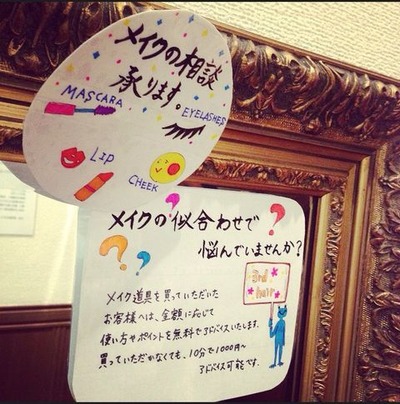 メイクの相談
承ります。
MASCARA
EYELASHES
LIP
CHEEK
メイクの似合わせで
悩んでいませんか?
3rd
hair
メイク道具を買っていただいた
お客様へは、金額に応じて
使い方やポイントを無料でアドバイスいたします。
買っていただかなくても、10分で1000円〜
アドバイス可能です。